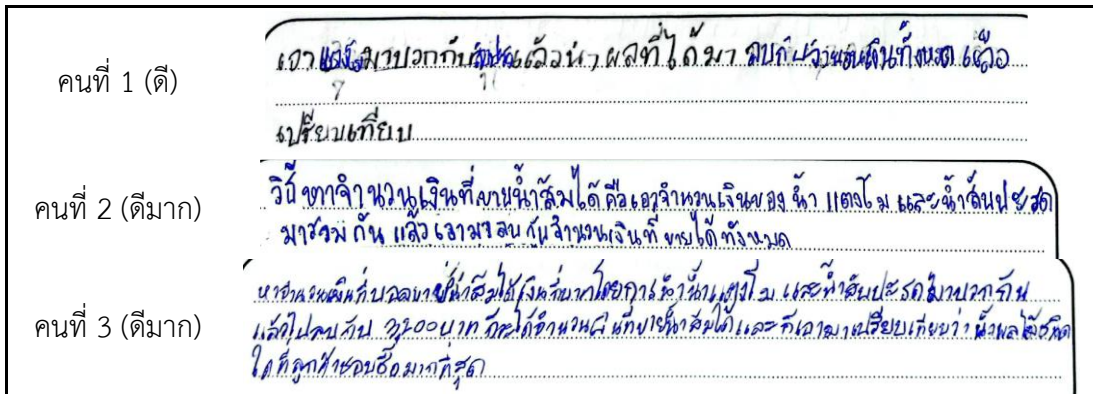 เอาแตงโมมาบวกกับสับปะรดแล้วนำผลที่ได้มา ลบกับจำนวนเงินทั้งหมด เพื่อ
คนที่ 1 (ดี)
เปรียบเทียบ
วิธีหาจำนวนเงินที่ขายน้ำส้มได้ คือเอาจำนวนเงินของ น้ำ แตงโม และน้ำสับปะรด
คนที่ 2 (ดีมาก)
มารวมกัน แล้วเอามาลบ กับจำนวนเงินที่ขายได้ทั้งหมด
หาจำนวนเงินที่ ขายน้ำส้มได้ โดยการนำน้ำแตงโม และน้ำสับปะรดมาบวกกัน
คนที่ 3 (ดีมาก)
แล้วไปลบกับ 3,200 บาท ก็จะได้จำนวนเงินที่ขายน้ำส้มได้ และก็เอามาเปรียบเทียบว่า น้ำผลไม้ชนิด
ใดที่ลูกค้าชอบซื้อมากที่สุด